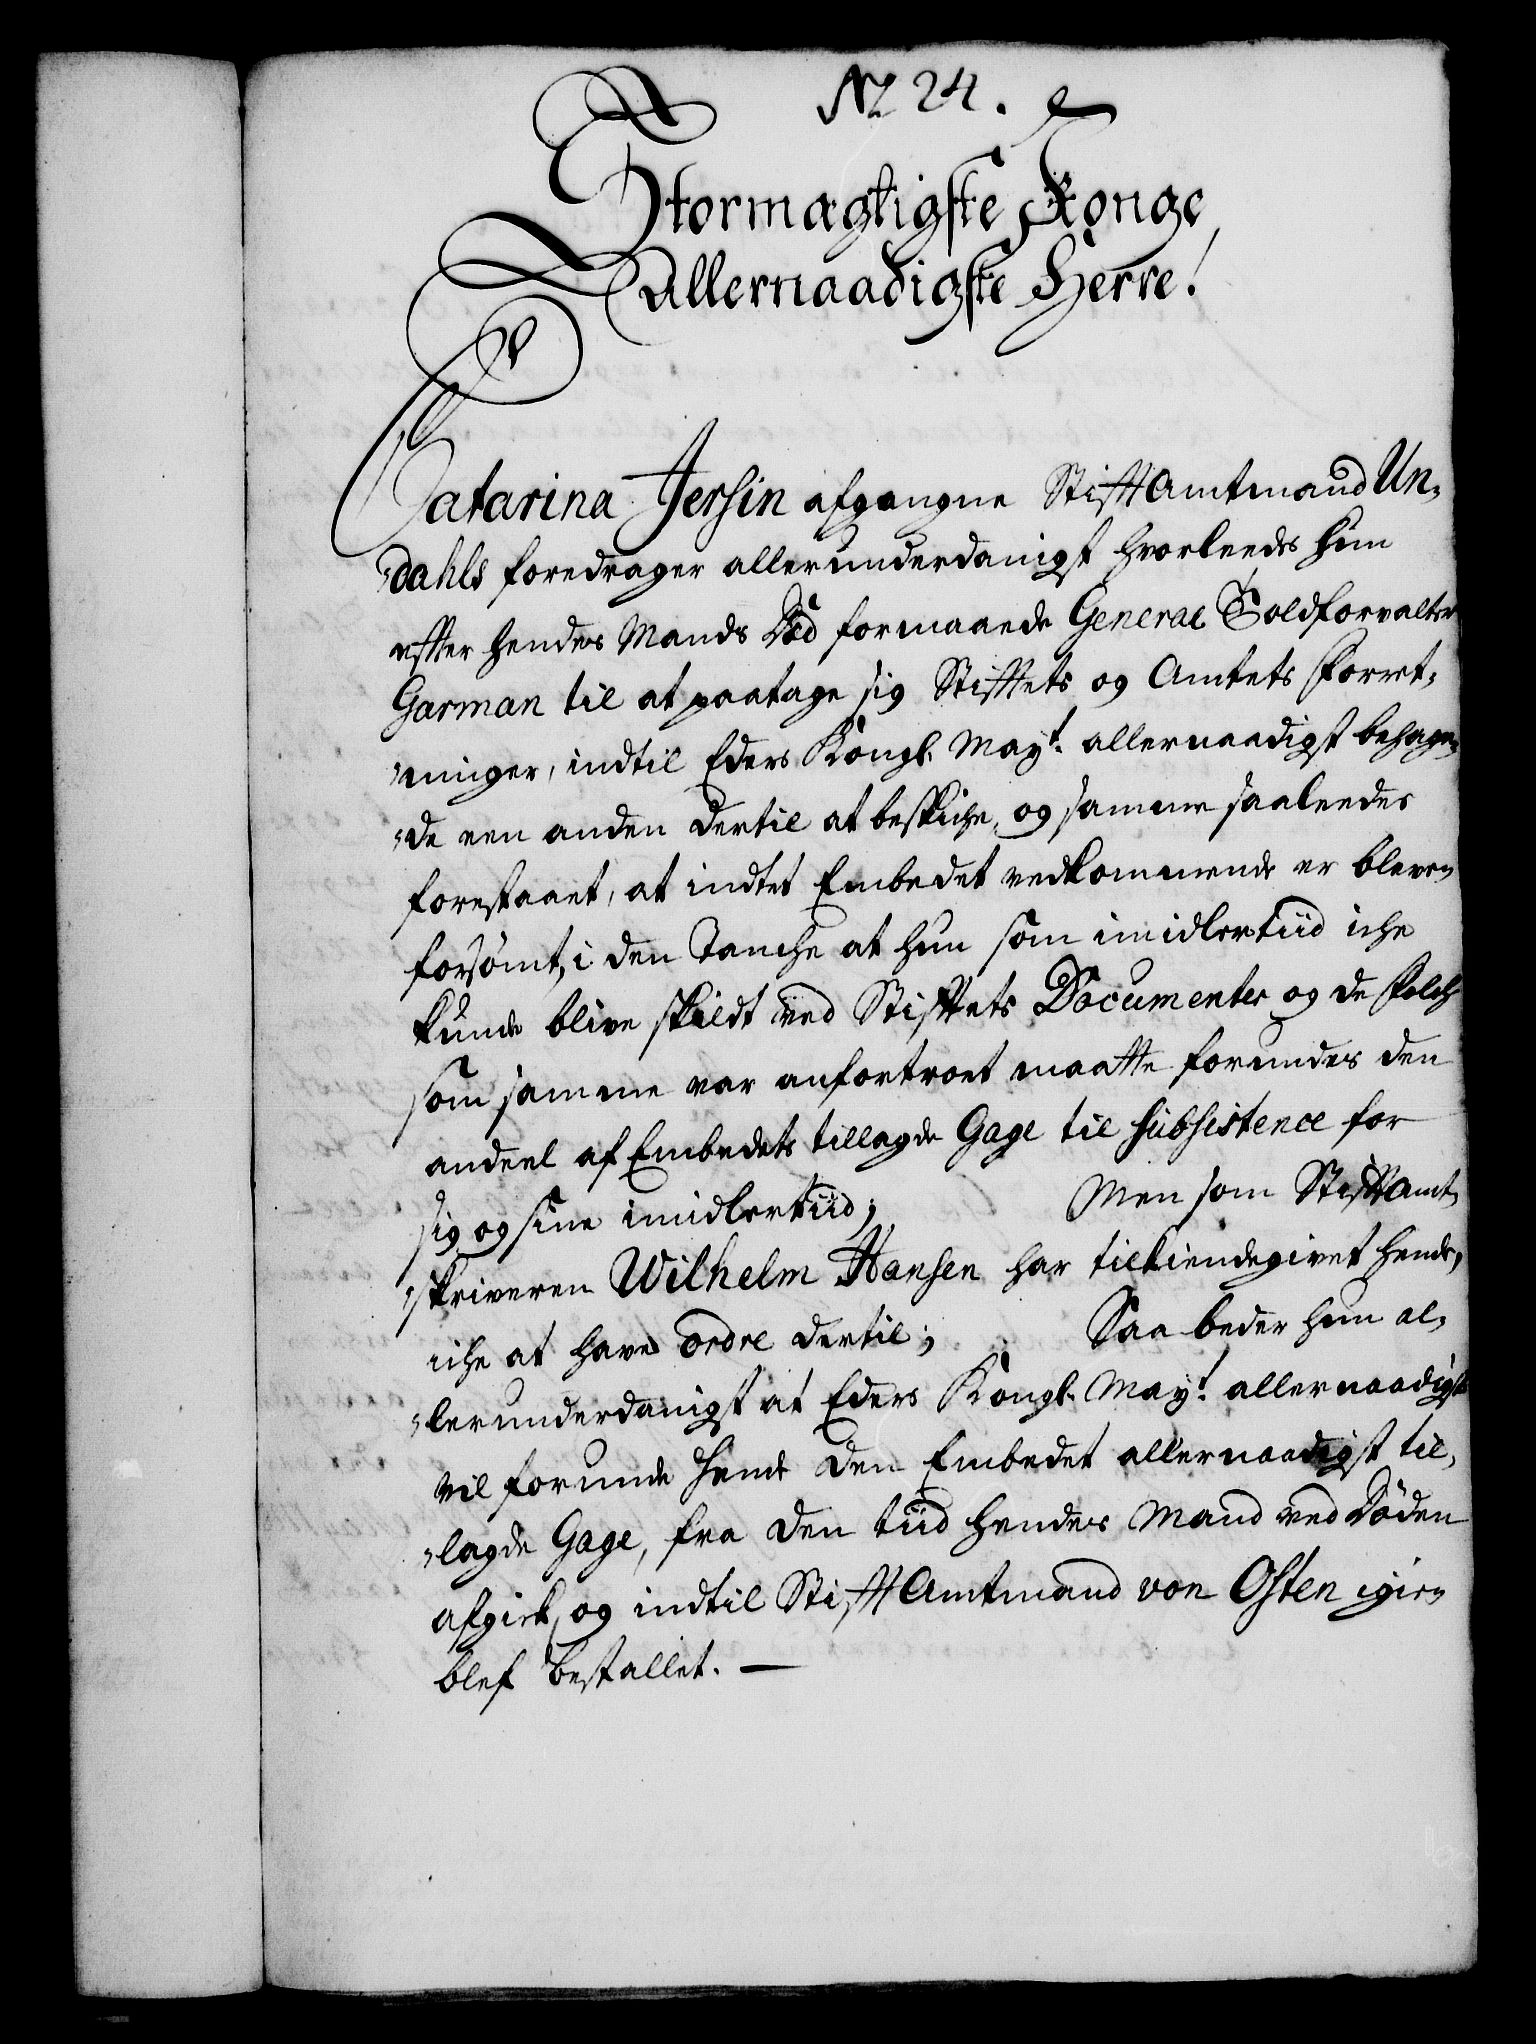 No 24.
Stormægtigste Konge
Allernaadigste Herre!
Catarina Jersin afgangne Stifft Amtmand Un-
-dahls foredrager allerunderdanigst hvorleedes hun
effter hendes Mands Død formaaede General Toldforvalter
Garman til at paatage sig Stifftets og Amtets Forret-
-ninger, indtil Eders Kongl. Mayt. allernaadigst behage-
-de een anden dertil at beskiche, og samme saaleedes
forestaaet, at indtet Embedet vedkommende er bleven
forsømt, i den Tanche at hun som imidlertiid iche
kunde blive skildt ved Stifftets Documenter og de Folch
som samme var anfortroet maatte forundes den
andeel af Embedets tillagde Gage til subsistence for
sig og sine imidlertiid; Men som Stifft Amt-
-skriveren Wilhelm Hansen har tilkiendegivet hende,
iche at have ordre dertil; Saa beder hun al-
-lerunderdanigst at Eders Kongl. Mayt. allernaadigst
vil forunde hende den Embedet allernaadigst til-
-lagde Gage, fra den tiid hendes Mand ved Døden
afgick, og indtil Stifft Amtmand von Osten igien
blef bestallet. —